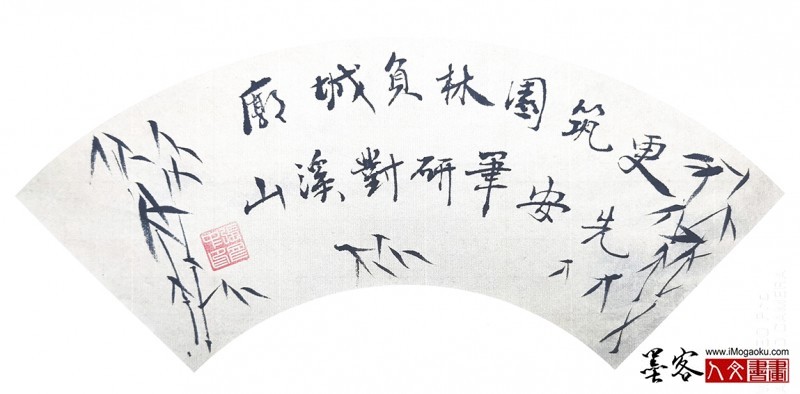 更筑園林負城廓
先安筆研對溪山
墨客
www.iMogaoku.com
人文書畫